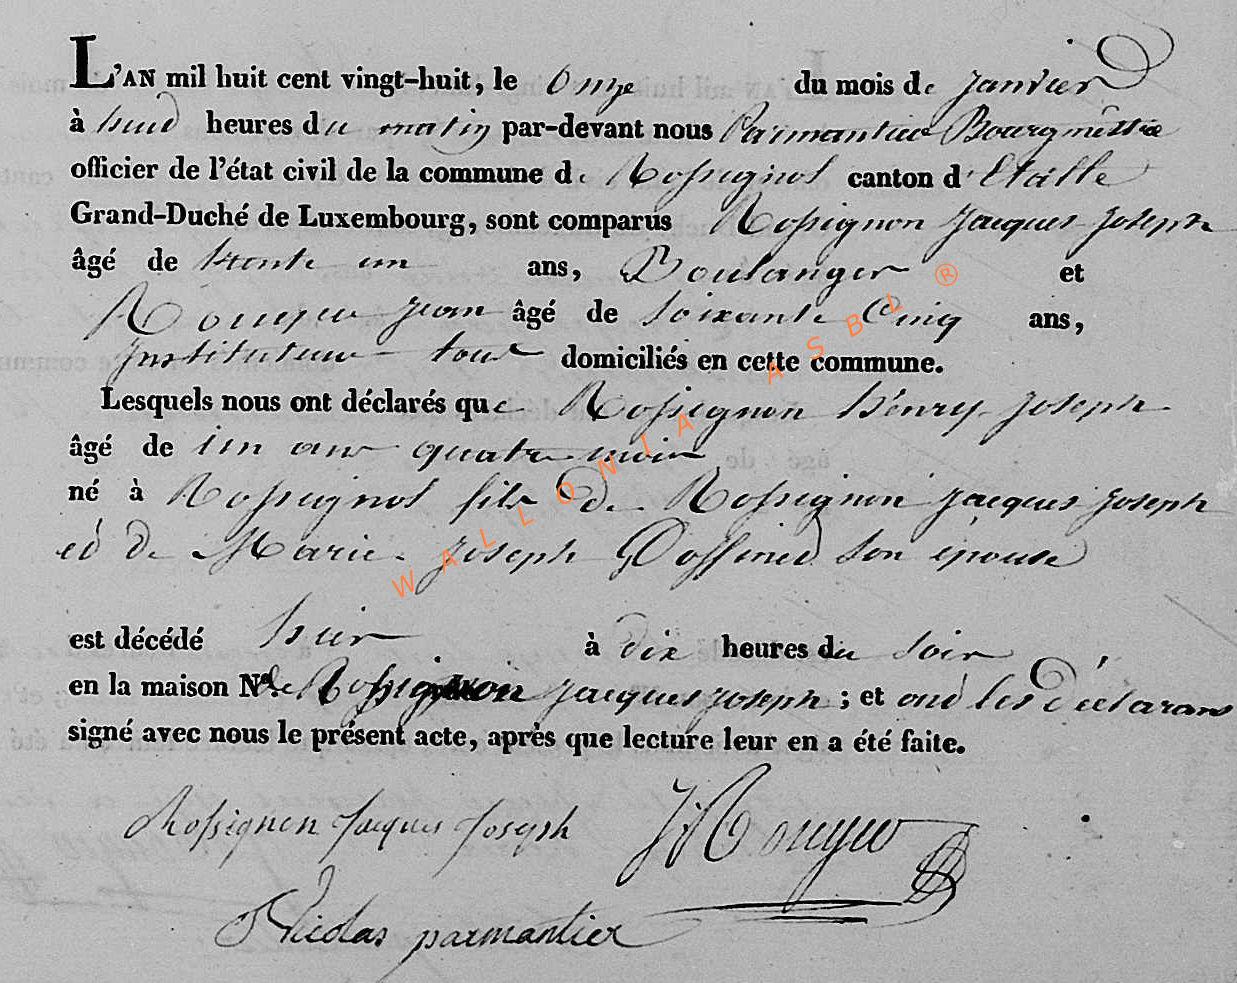 L'AN mil huit cent vingt-huit, le Onze du mois de janvier
à huit heures du matin par-devant nous Parmantier Bourgmêstre
officier de l'état civil de la commune de Rossignol canton d'Etalle
Grand-Duché de Luxembourg, sont comparus Rossignon Jacques Joseph
âgé de trente un ans, Boulanger et
Jean âgé de Soixante Cinq ans,
Instituteur tous domiciliés en cette commune.
Lesquels nous ont déclarés que Rossignon Henry Joseph
âgé de un ans quatre mois
né à Rossignol fils de Rossignon Jacques Joseph
et de Marie Joseph Goffinet Son épouse
est décédé hier à dix heures du Soir
en la maison N.º de Rossignon Jacques Joseph ; et ont les Déclarans
signé avec nous le présent acte, après que lecture leur en a été faite.
Rossignon Jacques Joseph
Nicolas parmantier
WALLONIA ASBL ®